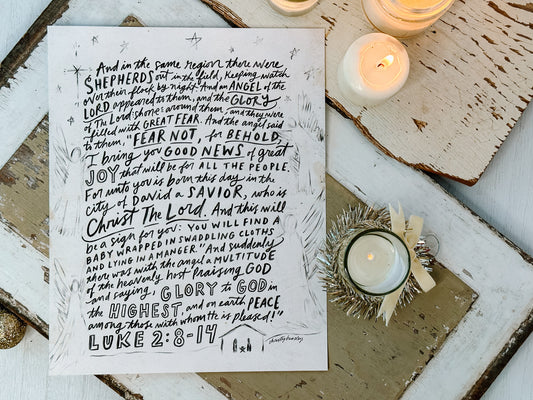 And in the same region there were
SHEPHERDS out in the field, keeping watch
over their flock by night. And an ANGEL of the
LORD appeared to them, and the GLORY
of The Lord shone around them, and they were
filled with GREAT FEAR. And the angel said
to them, "FEAR NOT, for BEHOLD,
I bring you GOOD NEWS of great
JOY that will be for ALL THE PEOPLE.
For unto you is born this day in the
city of DAVID a SAVIOR, who is
Christ The Lord. And this will
be a sign for you: YOU WILL FIND A
BABY WRAPPED IN SWADDLING CLOTHS
AND LYING IN A MANGER." And suddenly
there was with the angel a MULTITUDE
of the heavenly host PRAISING GOD
and saying, GLORY to GOD in
the HIGHEST, and on earth PEACE
among those with whom He is pleased!"
LUKE 2:8-14